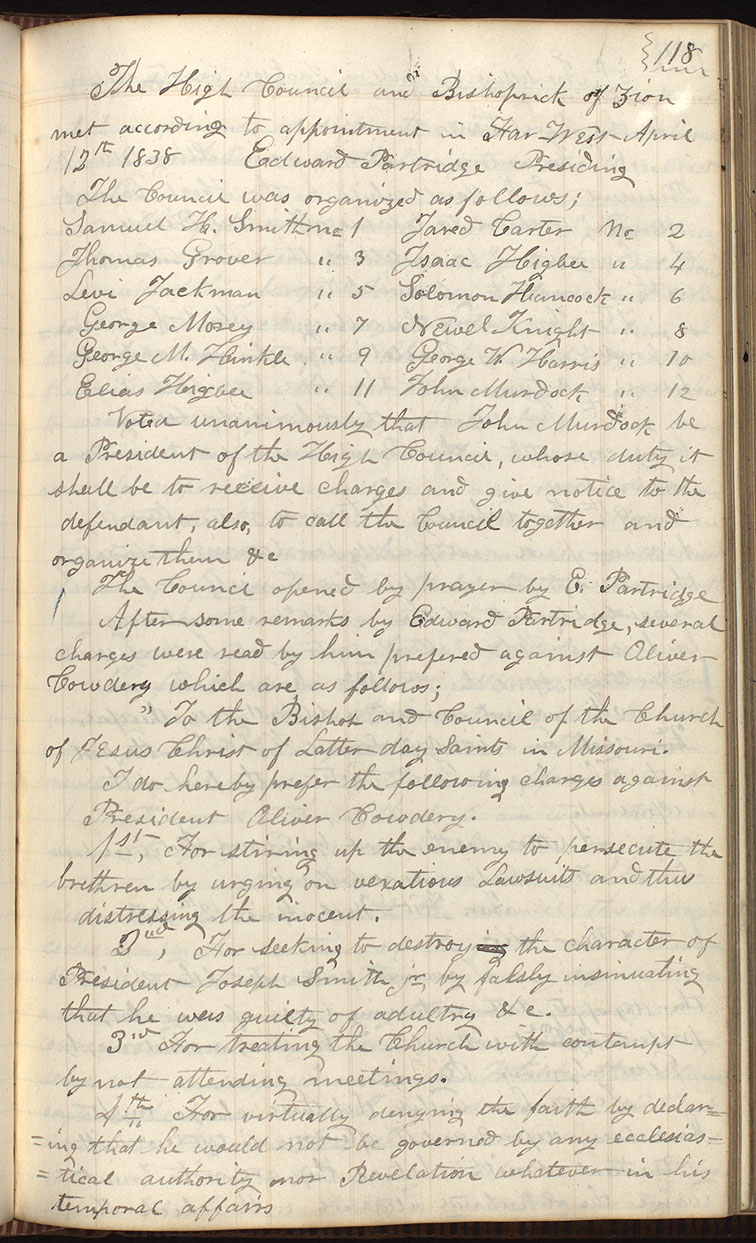 118
The High Council and Bishoprick of Zion
met according to appointment in Far West April
12th 1838 Edward Partridge Presiding
The Council was organized as follows;
Samuel H. Smith No 1 Jared Carter No 2
Thomas Grover " 3 Isaac Higbee " 4
Levi Jackman " 5 Solomon Hancock " 6
George Morey " 7 Newel Knight " 8
George M. Hinkle " 9 George W. Harris " 10
Elias Higbee " 11 John Murdock " 12
Voted unanimously that John Murdock be
a President of the High Council, whose duty it
shall be to receive charges and give notice to the
defendant, also, to call the Council together and
organize them &c
The Council opened by prayer by E. Partridge
After some remarks by Edward Partridge, several
charges were read by him prefered against Oliver
Cowdery which are, as follows;
" To the Bishop and Council of the Church
of Jesus Christ of Latter day Saints in Missouri.
I do hereby prefer the following charges against
President Oliver Cowdery.
1st, For stiring up the enemy to persecute the
brethren by urging on vexatious Lawsuits and thus
distressing the inocent.
2nd, For seeking to destroy the character of
President Joseph Smith jr, by falsly insinuating
that he was guilty of adultry &c.
3rd For treating the Church with contempt
by not attending meetings.
4th For virtually denying the faith by declar=
=ing that he would not be governed by any ecclesias=
=tical authority nor Revelation whatever in his
temporal affairs